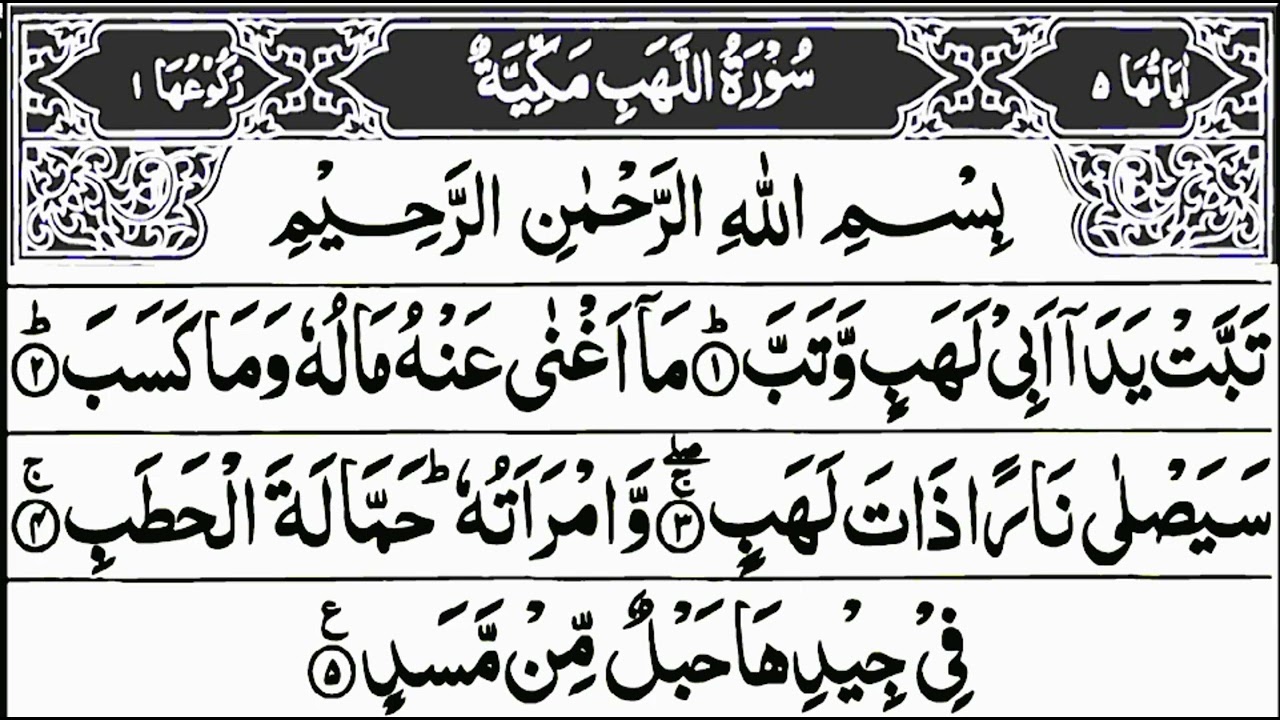 اٰيَاتُهَا ٥ سُوْرَةُ اللَّهَبِ مَكِّيَّةٌ رُكُوْعُهَا ١
بِسْمِ اللّٰهِ الرَّحْمٰنِ الرَّحِيْمِ
تَبَّتْ يَدَاۤ اَبِيْ لَهَبٍ وَّتَبَّ ؕ﴿۱﴾ مَاۤ اَغْنٰى عَنْهُ مَالُهٗ وَمَا كَسَبَ ؕ﴿۲﴾
سَيَصْلٰى نَارًا ذَاتَ لَهَبٍ ۖۚ﴿۳﴾ وَّامْرَاَتُهٗ ؕ حَمَّالَةَ الْحَطَبِ ۚ﴿۴﴾
فِيْ جِيْدِهَا حَبْلٌ مِّنْ مَّسَدٍ ﴿۵﴾ ع